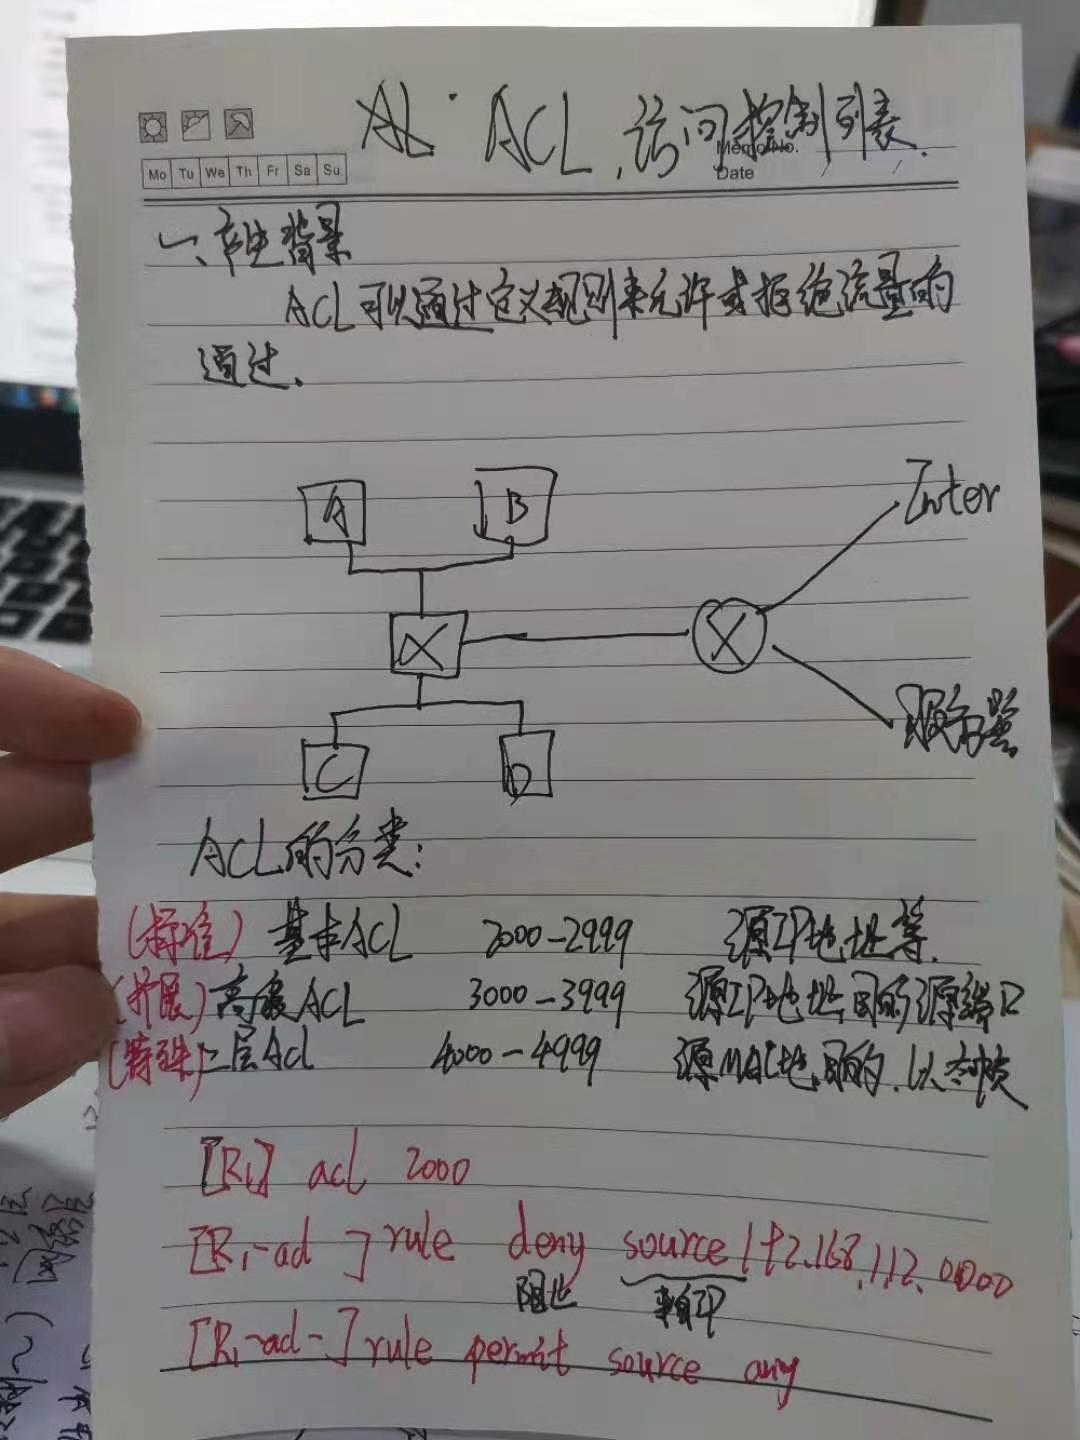 ACL,访问控制列表.
Memo No.
Mo Tu We Th Fr Sa Su
Date
一、产生背景
ACL可以通过定义规则来允许或拒绝流量的
通过.
A B
Inter
X X
服务器
C D
ACL的分类:
(标准) 基本ACL 2000-2999 源IP地址等.
(扩展) 高级ACL 3000-3999 源IP地址 目的 源端口
(特殊) 二层Acl 4000-4999 源MAC地 目的. 以太帧
[R1] acl 2000
[R1-acl ] rule deny source 192.168.1.12. 0.0.0.0
阻止 来自IP
[R1-acl-] rule permit source any